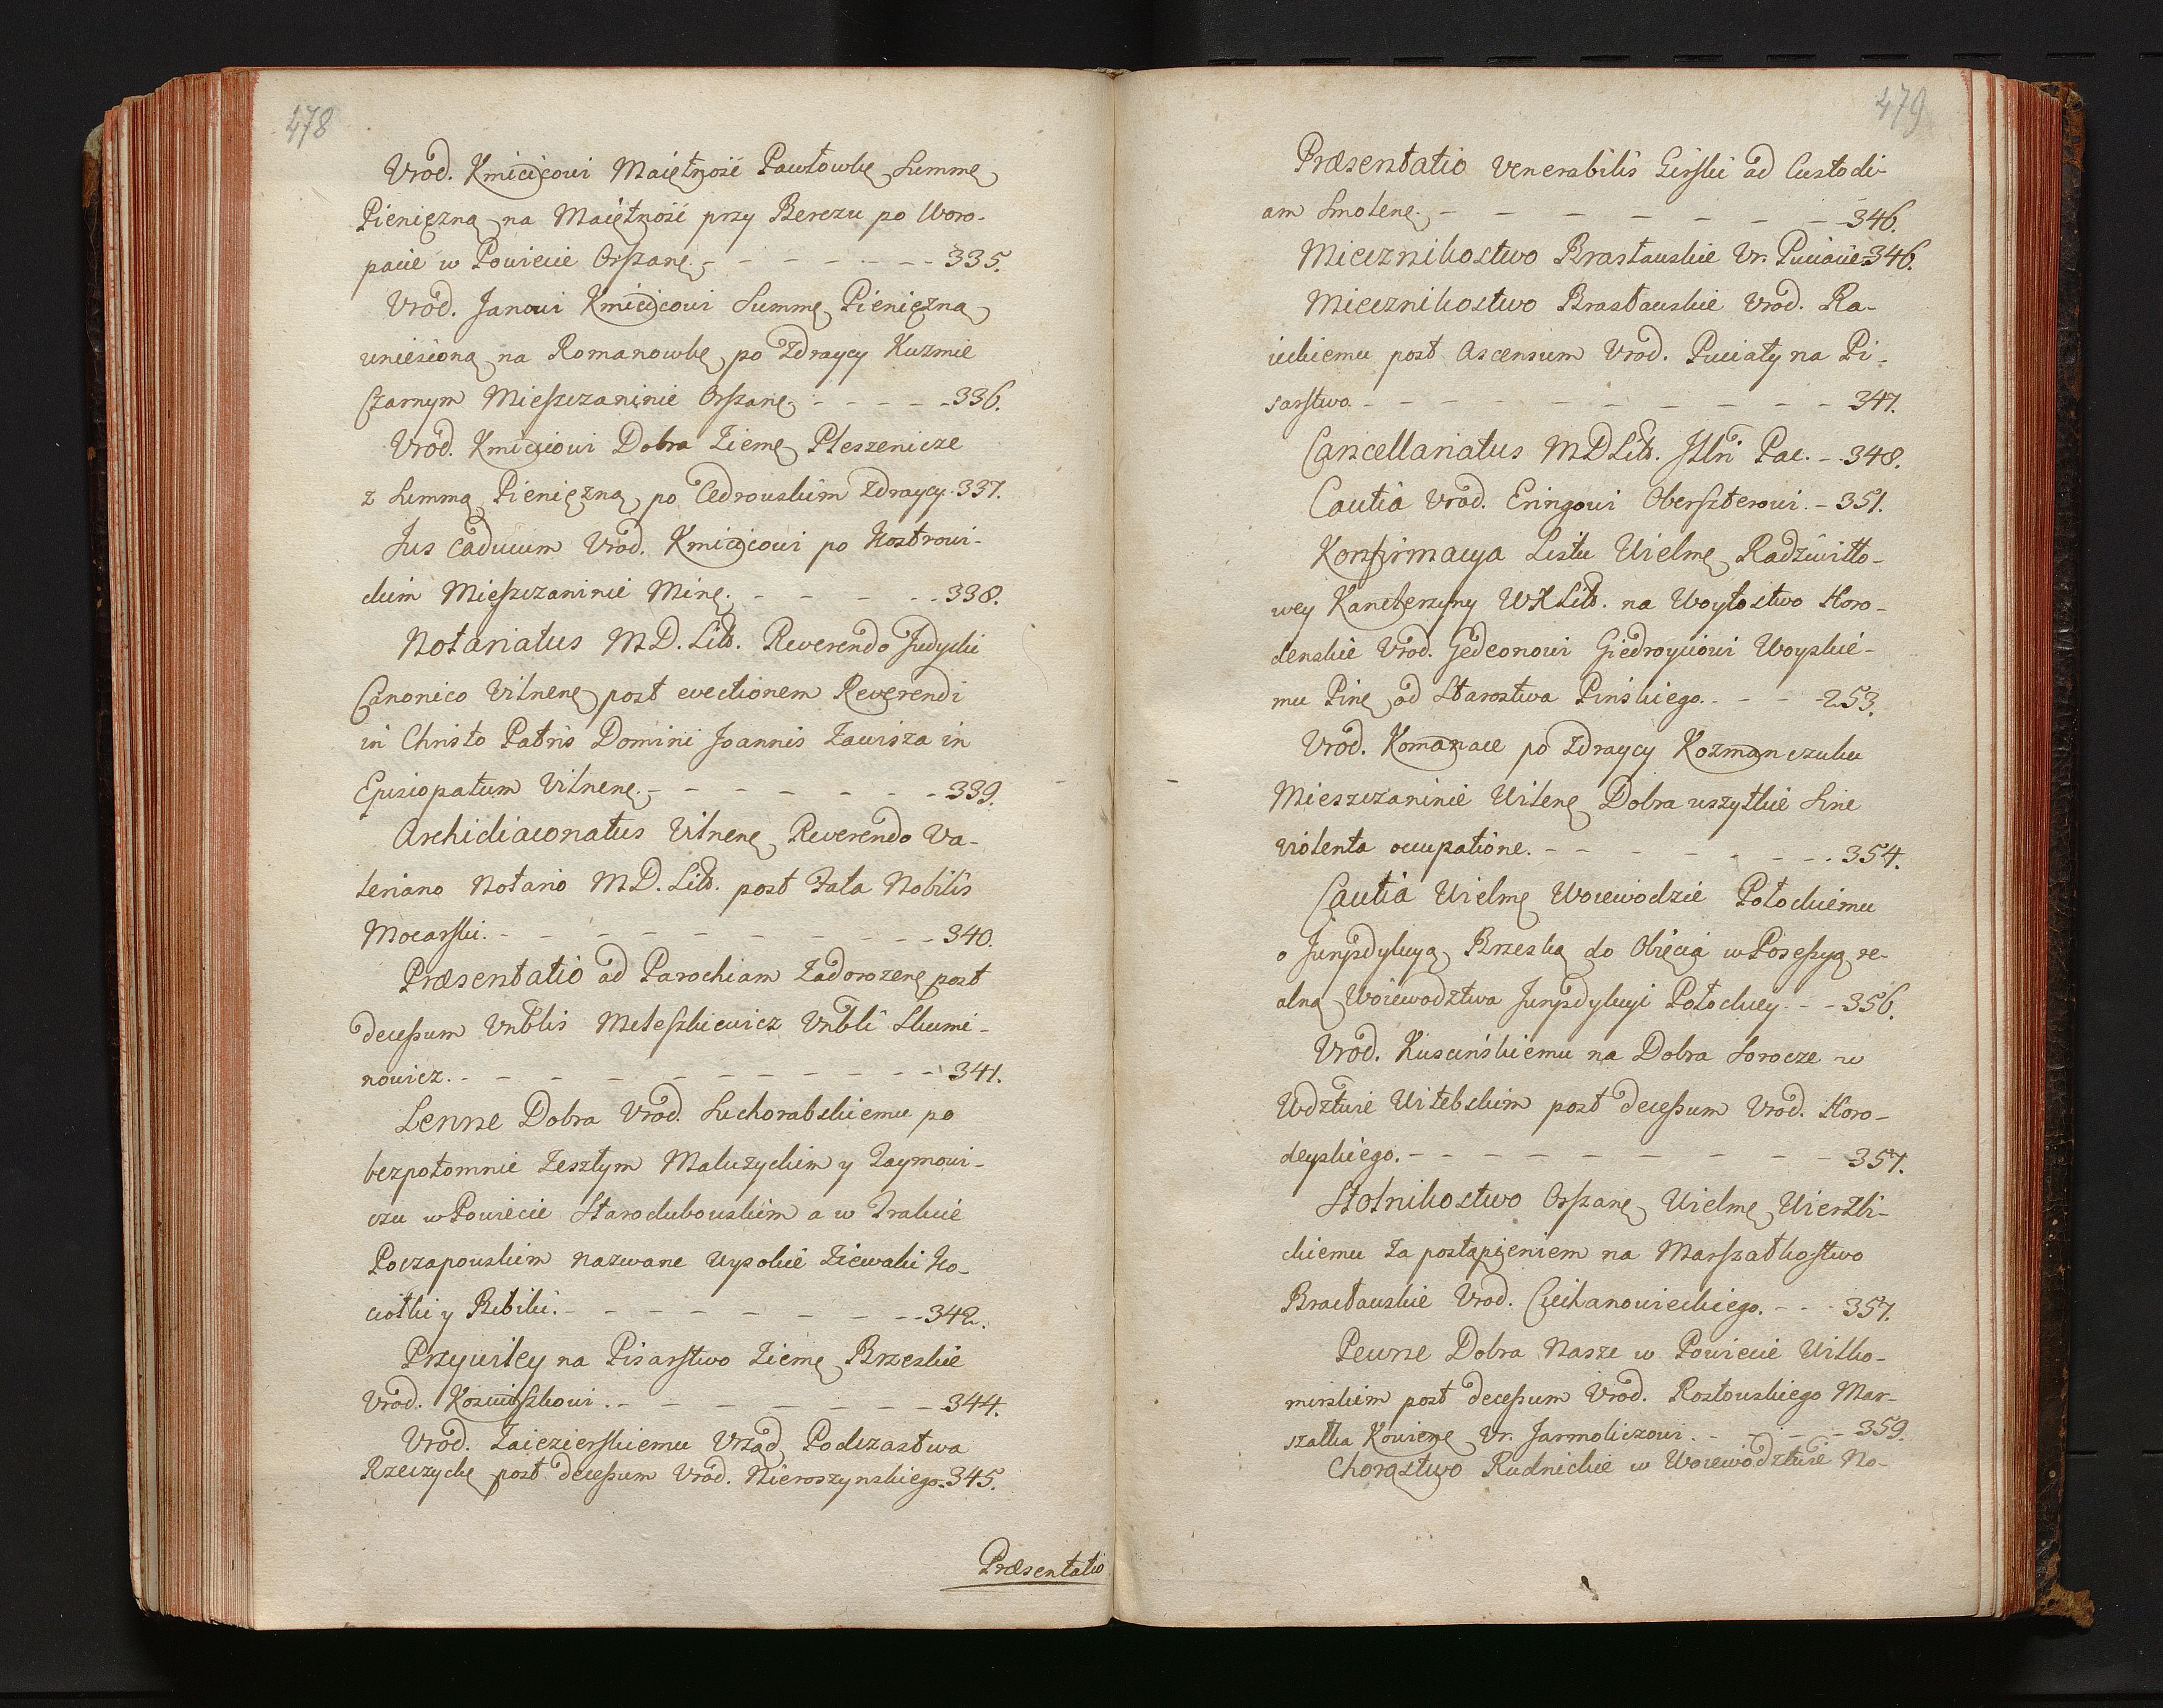 478
Vrod. Kmicicowi Maiętność Pawłowkę Summę
Pienięzną na Maiętność przy Berezu po Woro-
pacie w Powiecie Orszanę. - - - - - - - 335.
Vrod. Janowi Kmicicowi Summę Pienięzną
wniesioną na Romanowkę po Zdraycy Kuzmie
Czarnym Mieszczaninie Orszanę. - - - - - 336.
Vrod. Kmicicowi Dobra Ziemę Pleszenicze
z Summą Pienięzną po Cedrowskim Zdraycy. 337.
Jus Caducum Vrod. Kmicicowi po Kostrowi-
ckim Mieszczaninie Minę. - - - - - 338.
Notariatus M.D. Lit. Reverendo Judycki
Canonico Vilnenę post evectionem Reverendi
in Christo Patris Domini Joannis Zawisza in
Episcopatum Vilnenę. - - - - - - - 339.
Archidiaconatus Vilnenę Reverendo Va-
leriano Notario M.D. Lit. post Fata Nobilis
Mocarski. - - - - - - - - - - 340.
Præsentatio ad Parochiam Zadorozenę post
decessum Vnblis Meleszkiewicz Vnbli Skumi-
nowicz. - - - - - - - - - - - 341.
Lenne Dobra Vrod. Suchorabskiemu po
bezpotomnie Zeszłym Maluzyckim y Zaymowi-
czu w Powiecie Starodubowskim a w Trakcie
Poczapowskim nazwane Wysokie Ziewaki Ko-
ciołki y Bibiki. - - - - - - - 342.
Przywiley na Pisarstwo Ziemę Brzeskie
Vrod. - - - - - - - 344.
Vrod. Zaiezierskiemu Vrząd Podczastwa
Rzeczyckę post decessum Vrod. Nieroszynskiego. 345.
Præsentatio
479
Præsentatio Venerabilis Girski ad Custodi-
am Smolenę. - - - - - - - - 346.
Miecznikostwo Brasławskie Vr. Puciacie. 346.
Miecznikostwo Brasławskie Vrod. Ra-
ieckiemu post Ascensum Vrod. Puciaty na Pi-
sarstwo. - - - - - - - - - - 347.
Cancellariatus M D Lit. Jllri Pac. - 348.
Cautia Vrod. Eringowi Oberszterowi. - 351.
Konfirmacya Listu Wielmę Radziwiłło-
wey Kanclerzyny W X Lit. na Woytostwo Horo-
denskie Vrod. Gedeonowi Giedroyciowi Woyskie-
mu Pinę od Starostwa Pińskiego. - - - 253.
Vrod. Komanace po Zdraycy Kozmanczuku
Mieszczaninie Wilenę Dobra wszytkie Sine
violenta occupatione. - - - - - - - 354.
Cautia Wielmę Woiewodzie Połockiemu
o Jurysdykcyą Brzeską do Obięcia w Possessyą re-
alną Woiewodztwa Jurysdykcyi Połockiey. - - 356.
Vrod. Kuscińskiemu na Dobra Sorocze w
Wdztwie Witebskim post decessum Vrod. Horo-
deyskiego. - - - - - - - - - 357.
Stolnikostwo Orszanę Wielmę Wierzbi-
ckiemu Za postąpieniem na Marszałkostwo
Bracławskie Vrod. Ciechanowieckiego. - - - 357.
Pewne Dobra Nasze w Powiecie Wiłko-
mirskim post decessum Vrod. Rostowskiego Mar-
szałka Kowienę Vr. Jarmoliczowi. - - - - 359.
Chorąstwo Rudnickie w Woiewodztwie No-